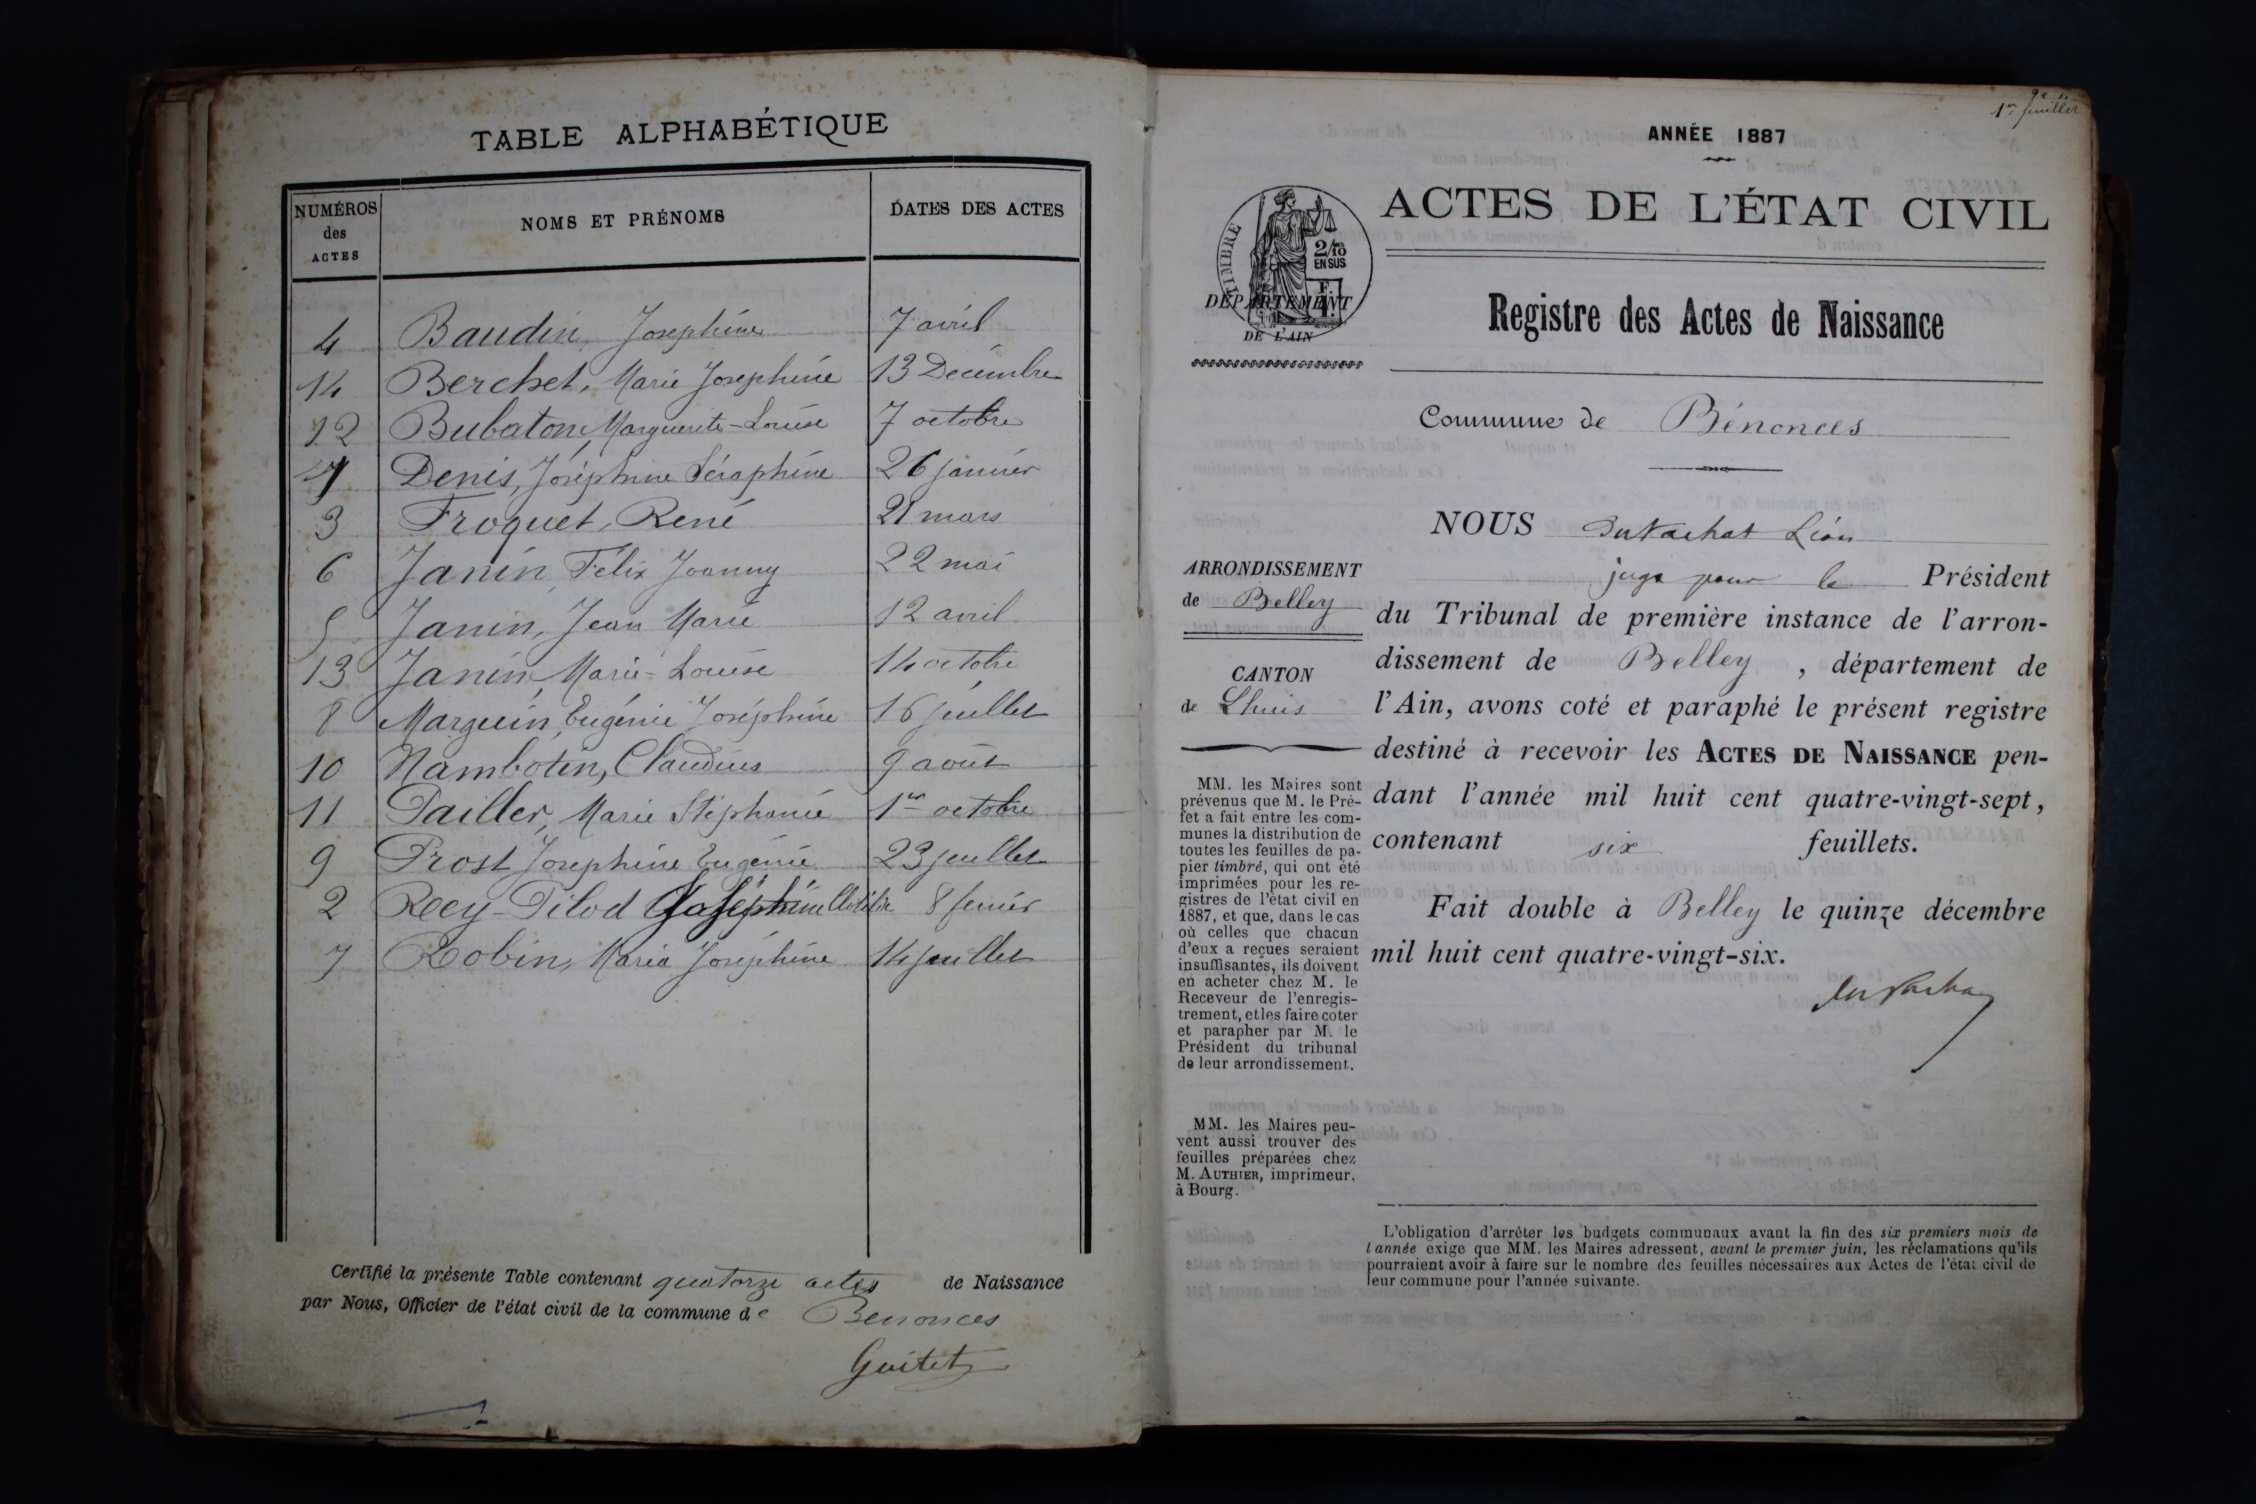 TABLE ALPHABÉTIQUE
NUMÉROS des ACTES
NOMS ET PRÉNOMS
DATES DES ACTES
4 Baudin, Josephine 7 avril
14 Berchet, Marie Josephine 13 Décembre
12 Bubaton, Marguerite-Louise 7 octobre
1 Denis, Joséphine Séraphine 26 janvier
3 Froquet, René 21 mars
6 Janin, Félix Joanny 22 mai
5 Janin, Jean Marie 12 avril
13 Janin, Marie-Louise 14 octobre
8 Marguin, Eugénie Joséphine 16 juillet
10 Nambotin, Claudius 9 août
11 Pailler, Marie Stéphanie 1er octobre
9 Prost Josephine Eugénie 23 juillet
2 Recy-Pilod Joséphine Clotilde 8 février
7 Robin, Maria Joséphine 14 juillet
Certifié la présente Table contenant quatorze actes de Naissance
par Nous, Officier de l'état civil de la commune de Benonces
Guitet
1er feuillet
ANNÉE 1887
ACTES DE L'ÉTAT CIVIL
TIMBRE
2/10
EN SUS
DÉPARTEMENT
DE L'AIN
Registre des Actes de Naissance
Commune de Bénonces
ARRONDISSEMENT
de Belley
CANTON
de Lhuis
MM. les Maires sont
prévenus que M. le Pré-
fet a fait entre les com-
munes la distribution de
toutes les feuilles de pa-
pier timbré, qui ont été
imprimées pour les re-
gistres de l'état civil en
1887, et que, dans le cas
où celles que chacun
d'eux a reçues seraient
insuffisantes, ils doivent
en acheter chez M. le
Receveur de l'enregis-
trement, et les faire coter
et parapher par M. le
Président du tribunal
de leur arrondissement.
MM. les Maires peu-
vent aussi trouver des
feuilles préparées chez
M. AUTHIER, imprimeur,
à Bourg.
NOUS Léon
juge pour le Président
du Tribunal de première instance de l'arron-
dissement de Belley, département de
l'Ain, avons coté et paraphé le présent registre
destiné à recevoir les ACTES DE NAISSANCE pen-
dant l'année mil huit cent quatre-vingt-sept,
contenant six feuillets.
Fait double à Belley le quinze décembre
mil huit cent quatre-vingt-six.
L'obligation d'arrêter les budgets communaux avant la fin des six premiers mois de
l'année exige que MM. les Maires adressent, avant le premier juin, les réclamations qu'ils
pourraient avoir à faire sur le nombre des feuilles nécessaires aux Actes de l'état civil de
leur commune pour l'année suivante.